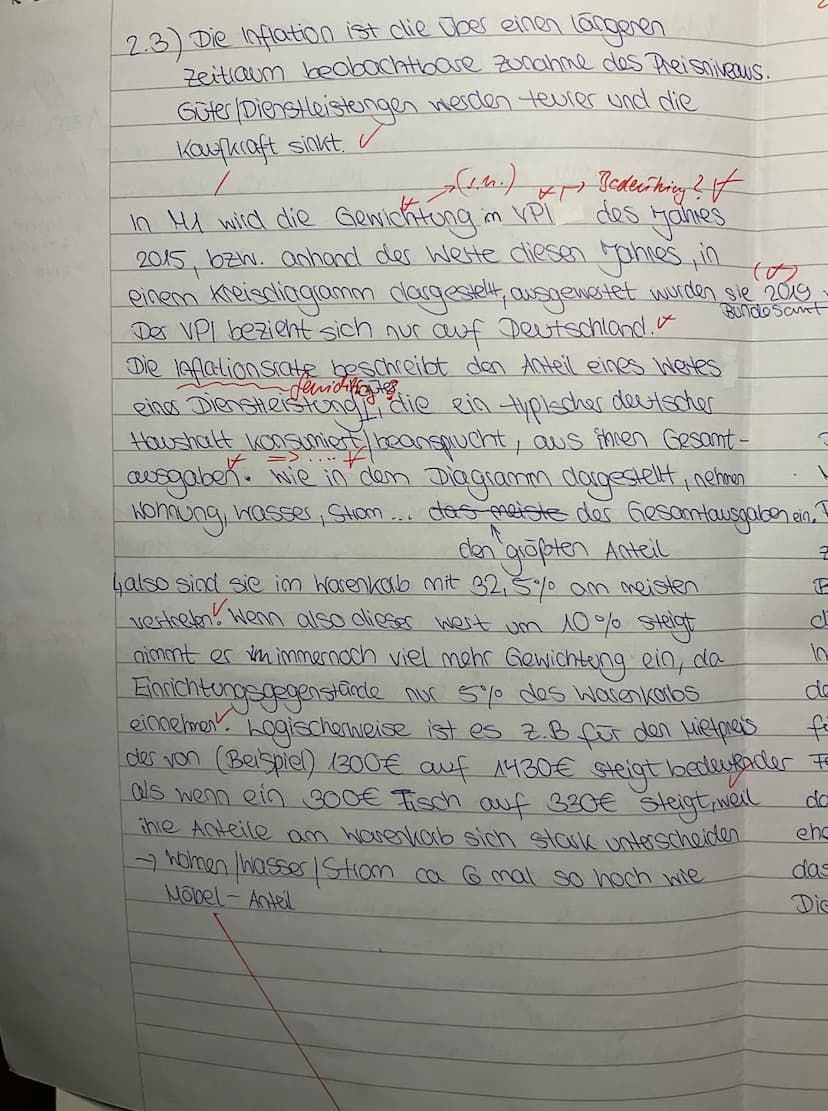 2.3) Die Inflation ist die über einen längeren
Zeitraum beobachtbare Zunahme des Preisniveaus.
Güter/Dienstleistungen werden teurer und die
Kaufkraft sinkt. ✓
(s.u.) Bedeutung?
In M1 wird die Gewichtung im VPI des Jahres
2015, bzw. anhand der Werte diesen Jahres, in
einem Kreisdiagramm dargestellt, ausgewertet wurden sie 2019
Bundesamt
Der VPI bezieht sich nur auf Deutschland.
Die Inflationsrate beschreibt den Anteil eines Wertes
einer Dienstleistung, die ein typischer deutscher
Haushalt konsumiert/beansprucht, aus ihren Gesamt-
ausgaben. Wie in dem Diagramm dargestellt, nehmen
Wohnung, Wasser, Strom... das meiste der Gesamtausgaben ein.
den größten Anteil
↳ also sind sie im Warenkorb mit 32,5% am meisten
vertreten. Wenn also dieser Wert um 10% steigt
nimmt er immernoch viel mehr Gewichtung ein, da
Einrichtungsgegenstände nur 5% des Warenkorbs
einnehmen. Logischerweise ist es z.B für den Mietpreis
der von (Beispiel) 1300€ auf 1430€ steigt bedeutender
als wenn ein 300€ Tisch auf 320€ steigt, weil
ihre Anteile am Warenkorb sich stark unterscheiden
→ Wohnen/Wasser/Strom ca 6 mal so hoch wie
Möbel-Anteil